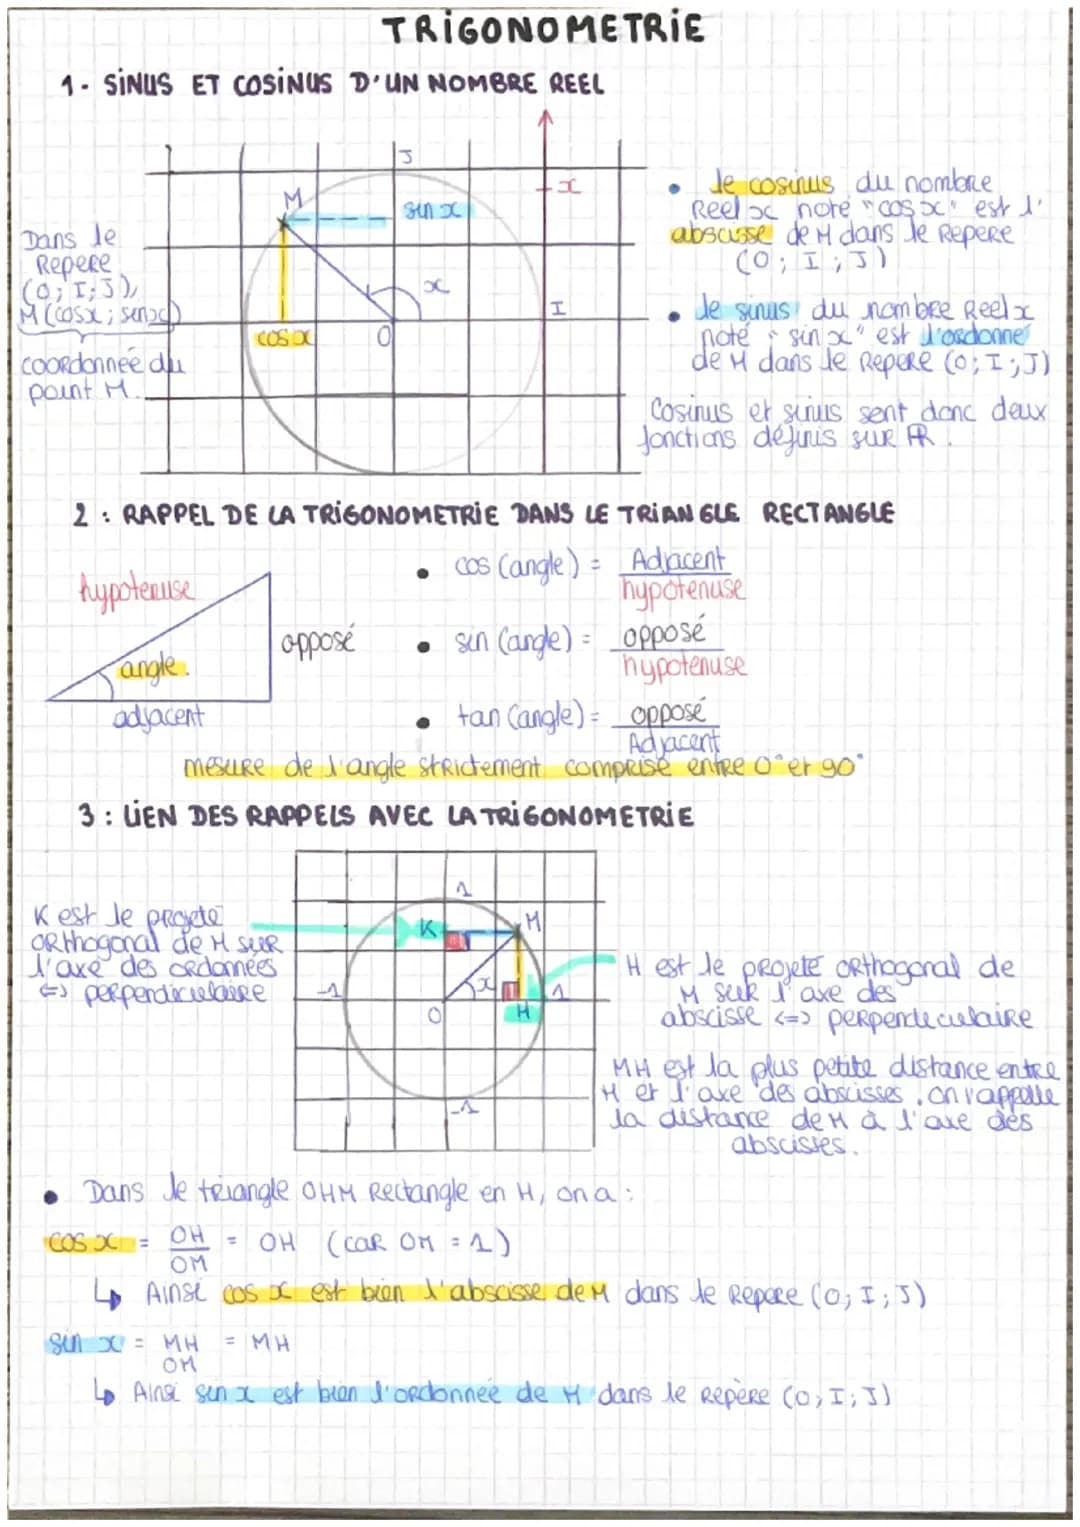 TRIGONOMETRIE
1 - SINUS ET COSINUS D'UN NOMBRE REEL
J
x
M
sin x
x
I
cos x
O
Dans le
Repere
(O; I; J),
M (cosx; sinx)
coordonnée du
point M.
• le cosinus du nombre
Reel x noté "cos x" est l'
abscisse de M dans le Repere
(O; I; J)
• le sinus du nombre Reel x
noté "sin x" est l'ordonné
de M dans le Repere (O; I; J)
Cosinus et sinus sont donc deux
fonctions définis sur ℝ.
2 : RAPPEL DE LA TRIGONOMETRIE DANS LE TRIANGLE RECTANGLE
hypotenuse
angle.
opposé
adjacent
• cos (angle) = Adjacent
hypotenuse
• sin (angle) = opposé
hypotenuse
• tan (angle) = opposé
Adjacent
mesure de l'angle strictement comprise entre 0° et 90°
3 : LIEN DES RAPPELS AVEC LA TRIGONOMETRIE
K est le projeté
orthogonal de M sur
l'axe des ordonnées
<=> perpendiculaire
1
K
M
-1
x
1
O
H
-1
H est le projeté orthogonal de
M sur l'axe des
abscisse <=> perpendiculaire
MH est la plus petite distance entre
M et l'axe des abscisses. on l'appelle
la distance de M à l'axe des
abscisses.
• Dans le triangle OHM Rectangle en H, on a :
cos x = OH = OH (car OM = 1)
OM
↳ Ainsi cos x est bien l'abscisse de M dans le Repere (O; I; J)
sin x = MH = MH
OM
↳ Ainsi sin x est bien l'ordonnée de M dans le Repère (O; I; J)